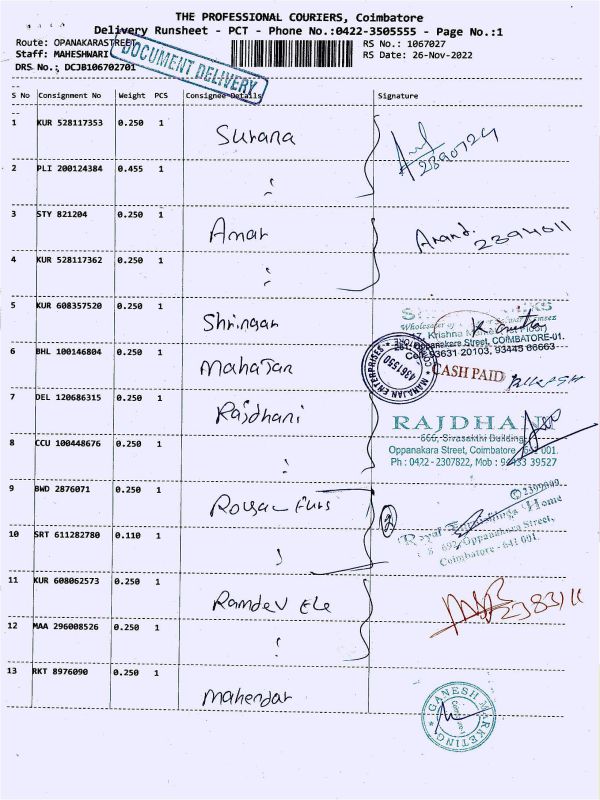 THE PROFESSIONAL COURIERS, Coimbatore
Delivery Runsheet - PCT - Phone No.:0422-3505555 - Page No.:1
Route: OPANAKARASTREET
RS No.: 1067027
Staff: MAHESHWARI
RS Date: 26-Nov-2022
DRS No.; DCJB106702701
DOCUMENT DELIVERY
S No Consignment No Weight PCS Consignee Details Signature
1 KUR 528117353 0.250 1 Surana
2390724
2 PLI 200124384 0.455 1
3 STY 821204 0.250 1 Amar
Anand. 2394011
4 KUR 528117362 0.250 1
5 KUR 608357520 0.250 1 Shringar
17, Krishna
Oppanakara Street, COIMBATORE-01.
Cell: 93631 20103, 93445 66663
6 BHL 100146804 0.250 1 Mahajan
MAHAJAN ENTERPRISES
4361550
CASH PAID
7 DEL 120686315 0.250 1 Rajdhani
RAJDHANI
666, Sivasakthi Building
8 CCU 100448676 0.250 1
Oppanakara Street, Coimbatore, 641 001.
Ph : 0422 - 2307822, Mob : 94433 39527
9 BWD 2876071 0.250 1 Royal Furs
2
2399909
Royal Furnishings Home
693, Oppanakara Street,
Coimbatore - 641 001.
10 SRT 611282780 0.110 1
11 KUR 608062573 0.250 1 Ramdev Ele
2383111
12 MAA 296008526 0.250 1
13 RKT 8976090 0.250 1 Mahendar
GANESH MARKETING